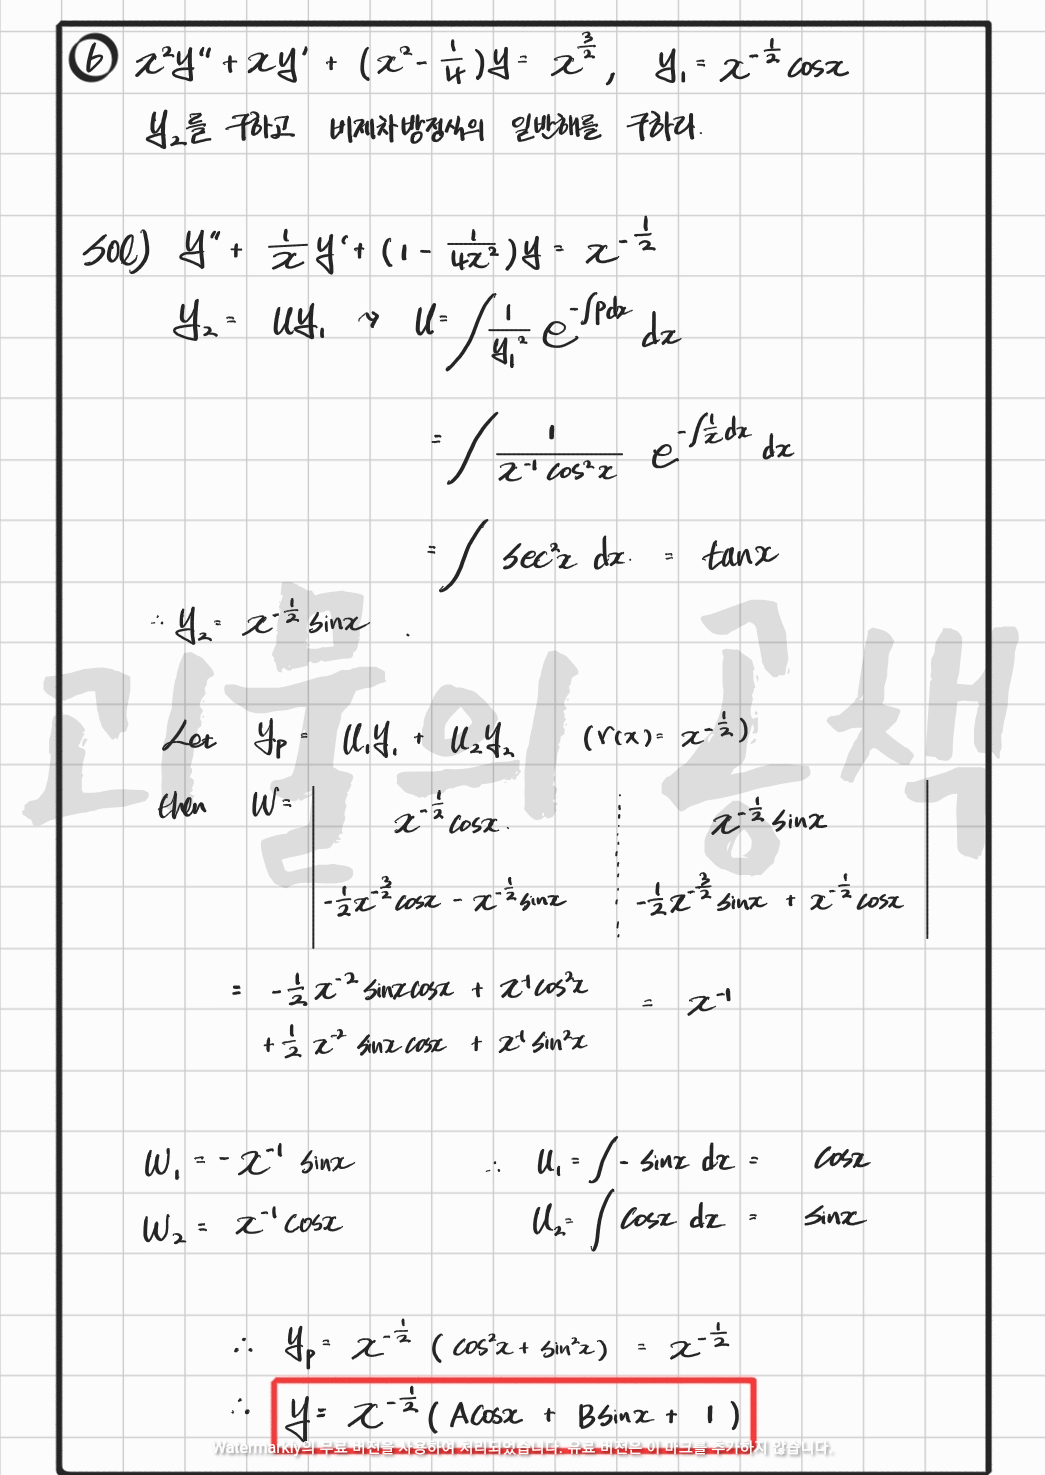 ⑥ x²y″ + xy′ + (x² - 1/4)y = x^(3/2), y₁ = x^(-1/2) cosx
y₂를 구하고 비제차방정식의 일반해를 구하라.
sol) y″ + 1/x y′ + (1 - 1/(4x²))y = x^(-1/2)
y₂ = uy₁ → u = ∫ 1/y₁² e^(-∫pdx) dx
= ∫ 1/(x⁻¹ cos²x) e^(-∫(1/x)dx) dx
= ∫ sec²x dx = tanx
∴ y₂ = x^(-1/2) sinx
괴물의 공책
Let y_p = u₁y₁ + u₂y₂ (r(x) = x^(-1/2))
then W = | x^(-1/2) cosx x^(-1/2) sinx |
| -1/2 x^(-3/2) cosx - x^(-1/2) sinx -1/2 x^(-3/2) sinx + x^(-1/2) cosx |
= -1/2 x⁻² sinxcosx + x⁻¹cos²x = x⁻¹
+ 1/2 x⁻² sinxcosx + x⁻¹sin²x
W₁ = -x⁻¹ sinx ∴ u₁ = ∫ - sinx dx = cosx
W₂ = x⁻¹ cosx u₂ = ∫ cosx dx = sinx
∴ y_p = x^(-1/2) (cos²x + sin²x) = x^(-1/2)
∴ y = x^(-1/2) (Acosx + Bsinx + 1)
Watermarkly의 무료 버전을 사용하여 처리되었습니다. 유료 버전은 이 마크를 추가하지 않습니다.